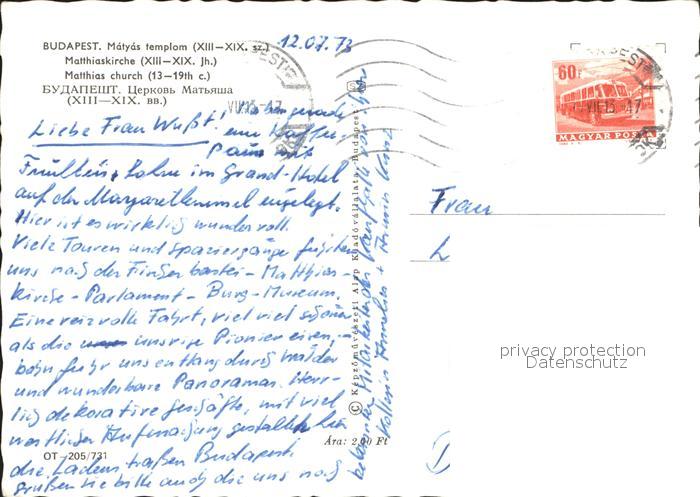 BUDAPEST. Mátyás templom (XIII—XIX. sz.)
Matthiaskirche (XIII—XIX. Jh.)
Matthias church (13—19th c.)
БУДАПЕШТ. Церковь Матьяша
(XIII—XIX. вв.)
12.07.73
VII.13.-47
60f
MAGYAR POSTA
Liebe Frau Wußt! Haben gerade
eine Kaffee-
Pause mit
Früllein + Sahne im Grand-Hotel
auf der Margareteninsel eingelegt.
Hier ist es wirklich wundervoll.
Viele Touren und Spaziergänge führten
uns nach der Fischerbastei - Matthias-
kirche - Parlament - Burg - Museum.
Eine reizvolle Fahrt, viel viel schöner
als die unsrige Pioniereisen-
bahn fuhr uns entlang durch Wälder
und wunderbare Panoramas. Herr-
lich dekorative Geschäfte, mit viel
Aufmachung gestaltet
die Ladenstraßen Budapest
grüßen Sie bitte auch die uns noch
bekannten Mitarbeiter
Képzőművészeti Alap Kiadóvállalata, Budapest
Ára: 2,00 Ft
OT—205/731
Frau
L
privacy protection
Datenschutz